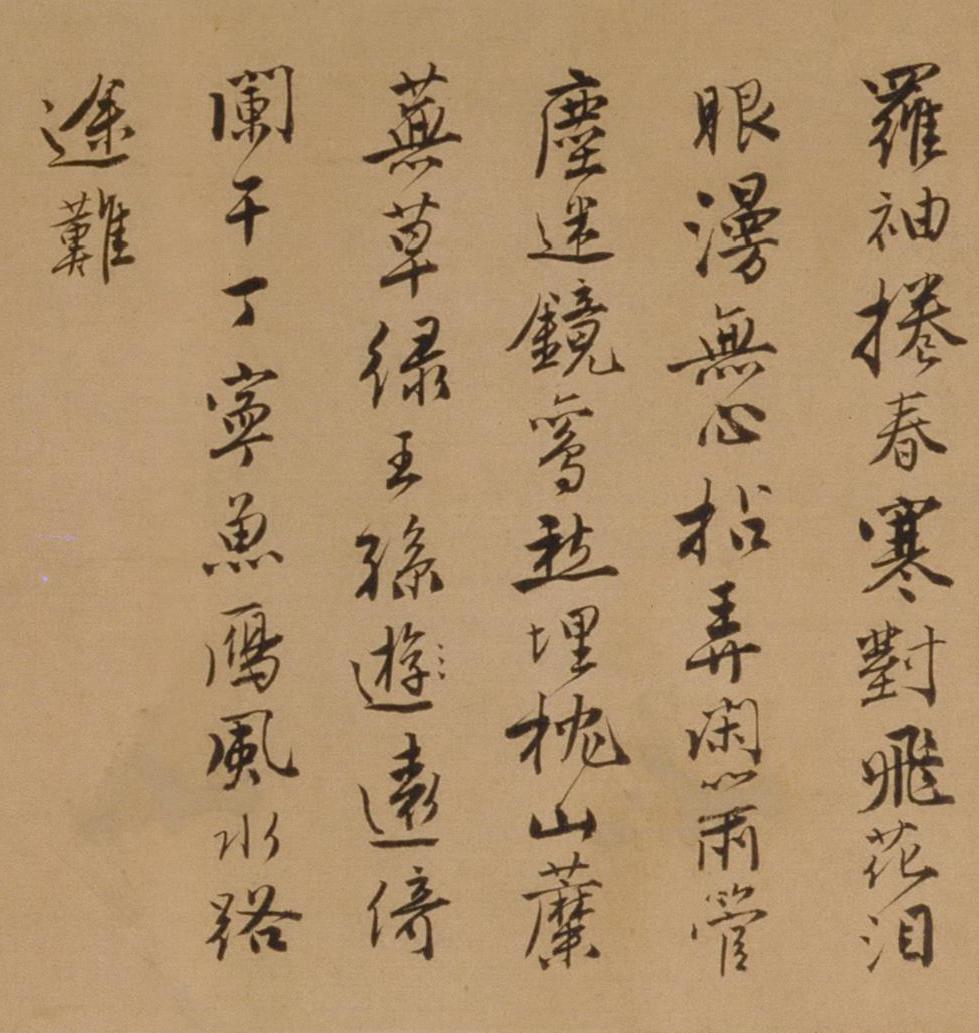 羅袖捲春寒對飛花泪
眼漫無心拈弄閑簫管
塵迷鏡鸞愁埋枕山蘼
蕪草緑王孫遊遠倚
闌干丁寧魚鴈風水路
途難